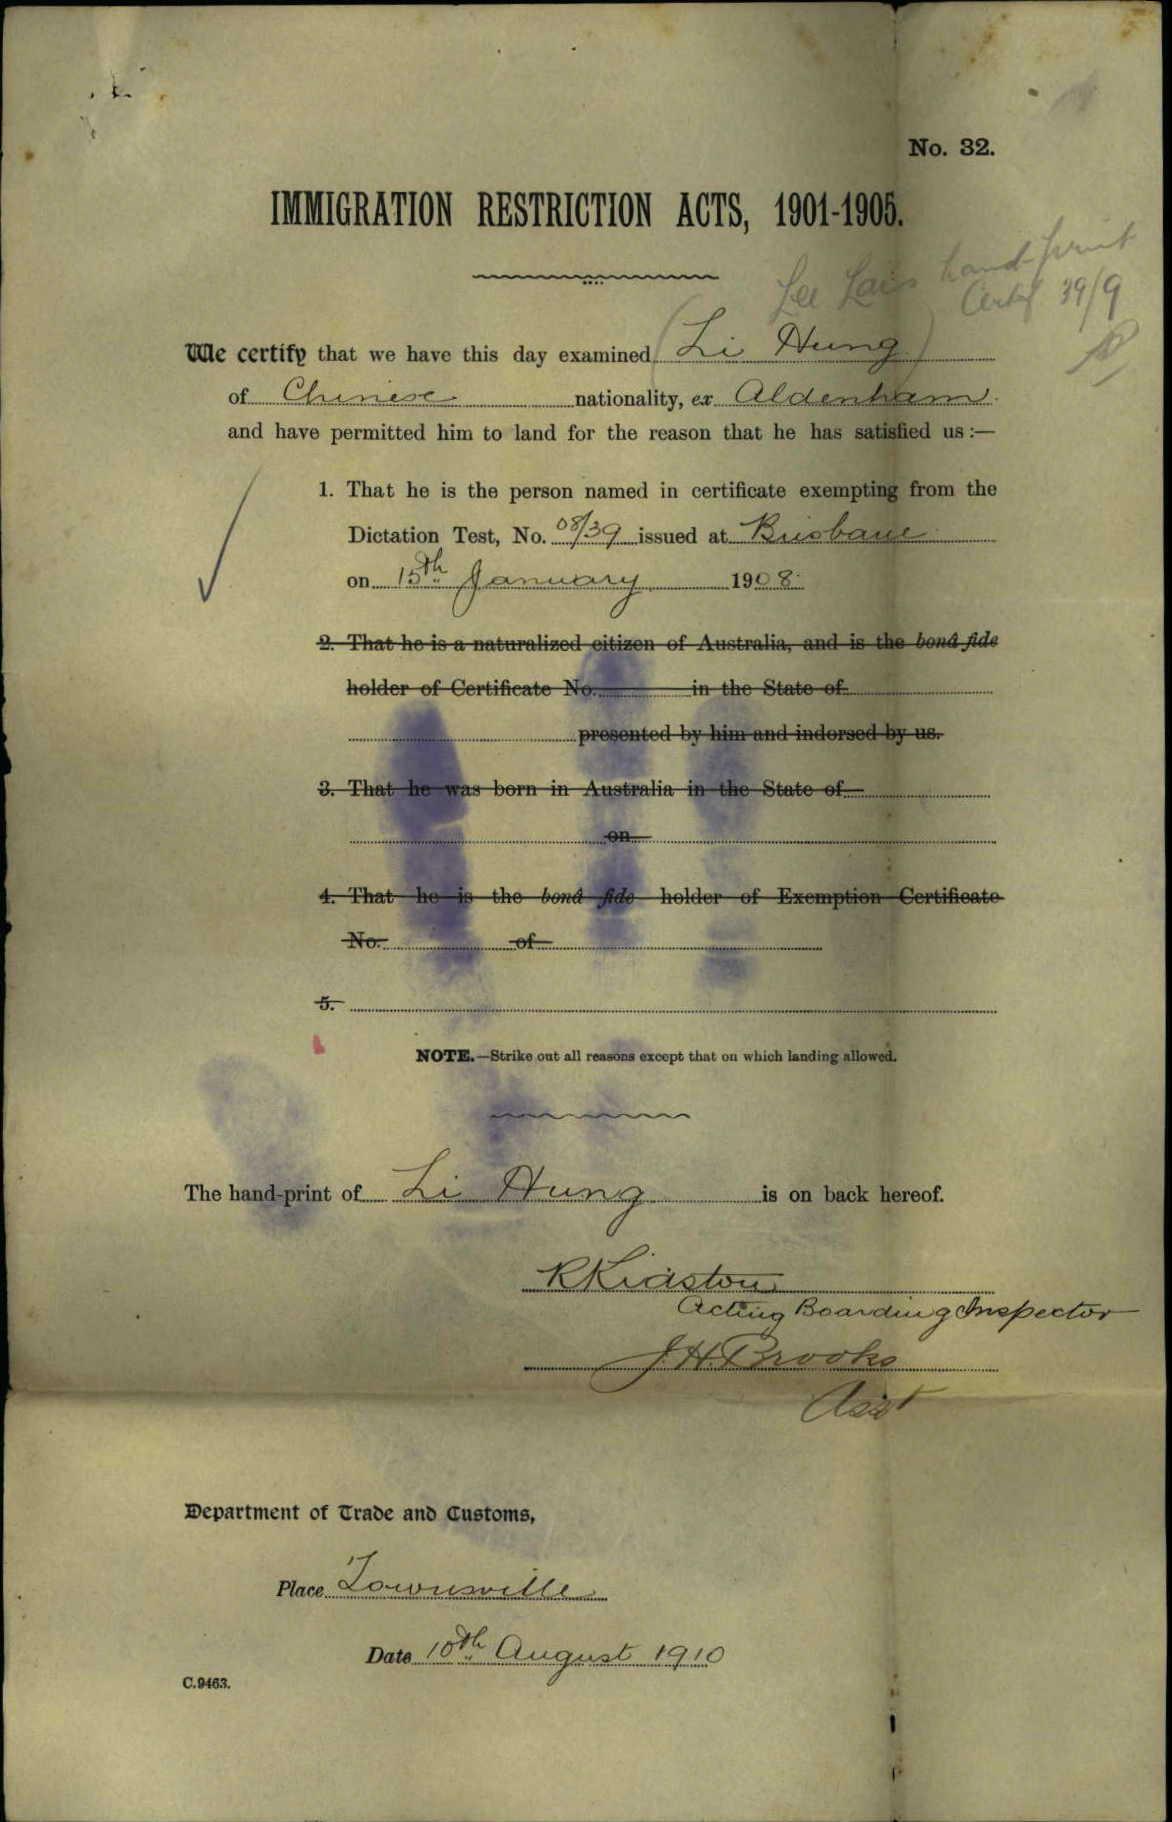 No. 32.
IMMIGRATION RESTRICTION ACTS, 1901-1905.
Lee Lais hand-print
Certif 39/9
We certify that we have this day examined (Li Hung)
of Chinese nationality, ex Aldenham.
and have permitted him to land for the reason that he has satisfied us:—
1. That he is the person named in certificate exempting from the
Dictation Test, No. 08/39 issued at Brisbane
on 15th January 1908.
2. That he is a naturalized citizen of Australia, and is the bonâ fide
holder of Certificate No. in the State of
presented by him and indorsed by us.
3. That he was born in Australia in the State of
on
4. That he is the bonâ fide holder of Exemption Certificate
No. of
5.
NOTE.—Strike out all reasons except that on which landing allowed.
The hand-print of Li Hung is on back hereof.
R Kidston
Acting Boarding Inspector
J.H. Brooks
Asst
Department of Trade and Customs,
Place Townsville
Date 10th August 1910
C.9463.